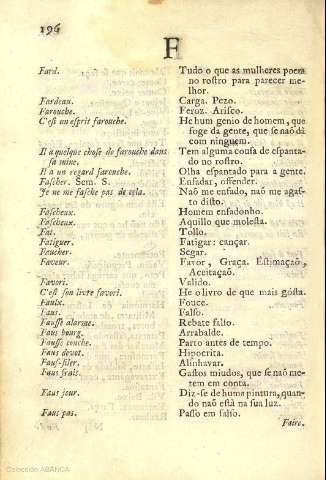 196
F
Fard. Tudo o que as mulheres poem
no rostro para parecer me-
lhor.
Fardeau. Carga. Pezo.
Farouche. Feroz. Arisco.
C'est un esprit farouche. He hum genio de homem, que
foge da gente, que se naõ dà
com ninguem.
Il a quelque chose de farouche dans Tem alguma cousa de espanta-
sa mine. do no rostro.
Il a un regard farouche. Olha espantado para a gente.
Fascher. Sem. S. Enfadar, offender.
Je ne me fasche pas de cela. Naõ me enfado, naõ me agas-
to disto.
Fascheux. Homem enfadonho.
Fascheux. Aquillo que molesta.
Fat. Tollo.
Fatiguer. Fatigar: cançar.
Faucher. Segar.
Faveur. Favor, Graça. Estimaçaõ,
Aceitaçaõ.
Favori. Valido.
C'est son livre favori. He o livro de que mais gósta.
Faulx. Fouce.
Faus. Falso.
Fausse alarme. Rebate falso.
Faus bourg. Arrabalde.
Fausse couche. Parto antes de tempo.
Faus devot. Hipocrita.
Faus-filer. Alinhavar.
Faus frais. Gastos miudos, que se naõ me-
tem em conta.
Faus jour. Diz-se de huma pintura, quan-
do naõ está na sua luz.
Faus pas. Passo em falso.
Faire.
Colección ABANCA